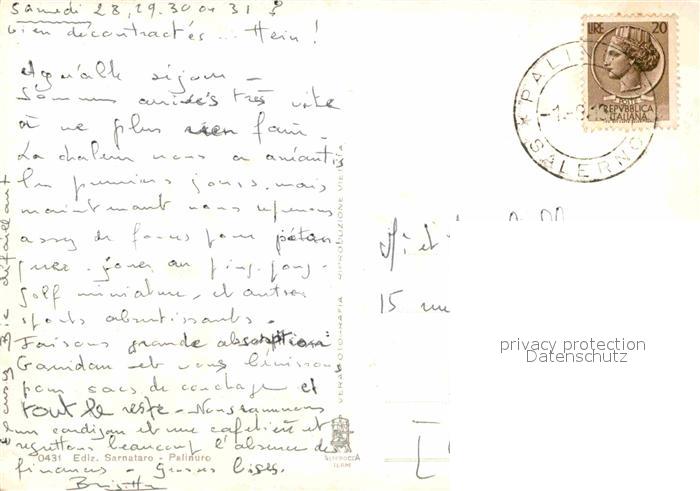 samedi 28, 29. 30 ou 31 ?
bien décontractés ... Hein !
Agréable séjour -
Sommes arrivés très vite
à ne plus rien faire.
La chaleur nous a anéantis
les premiers jours. mais
maintenant nous reprenons
assez de forces pour pétan-
quer. jouer au ping. pong-
golf miniature, et autres
sports abrutissants.
Faisons grande absorption
Gamidan et vous bénissons
pour sacs de couchage et
tout le reste - Nous ramenons
un cardigan et une cafetière et
regrettons beaucoup l'absence des
finances - Grosses bises.
Brigitte
0431 Ediz. Sarnataro - Palinuro
VERA FOTOGRAFIA - RIPRODUZIONE VIETATA
LIRE 20
POSTE
REPVBBLICA
ITALIANA
SALERNO
M. et
15 rue
privacy protection
Datenschutz